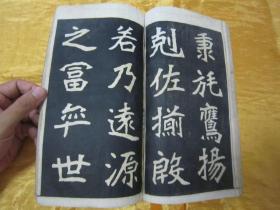 秉旄鷹揚
剋佐揃殷
若乃遠源
之富弈世